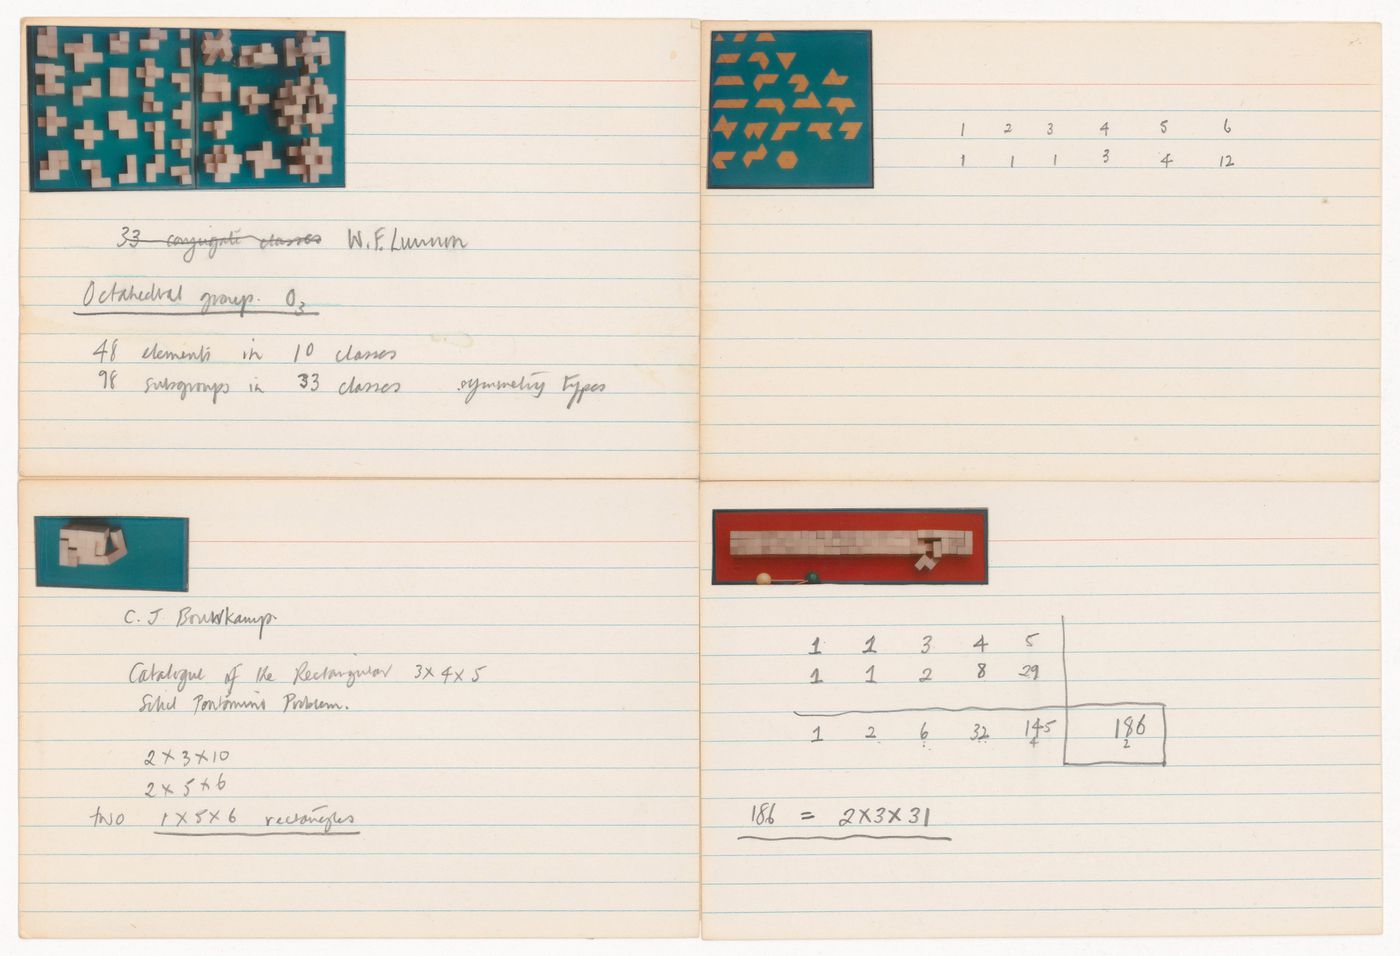 33 conjugate classes W.F. Lunnon
Octahedral group. O3
48 elements in 10 classes
98 subgroups in 33 classes symmetry types
1 2 3 4 5 6
1 1 1 3 4 12
C. J Bouwkamp.
Catalogue of the Rectangular 3×4×5
Solid Pentomino Problem.
2×3×10
2×5×6
two 1×5×6 rectangles
1 1 3 4 5
1 1 2 8 29
1 2 6 32 145 186
4 2
186 = 2×3×31